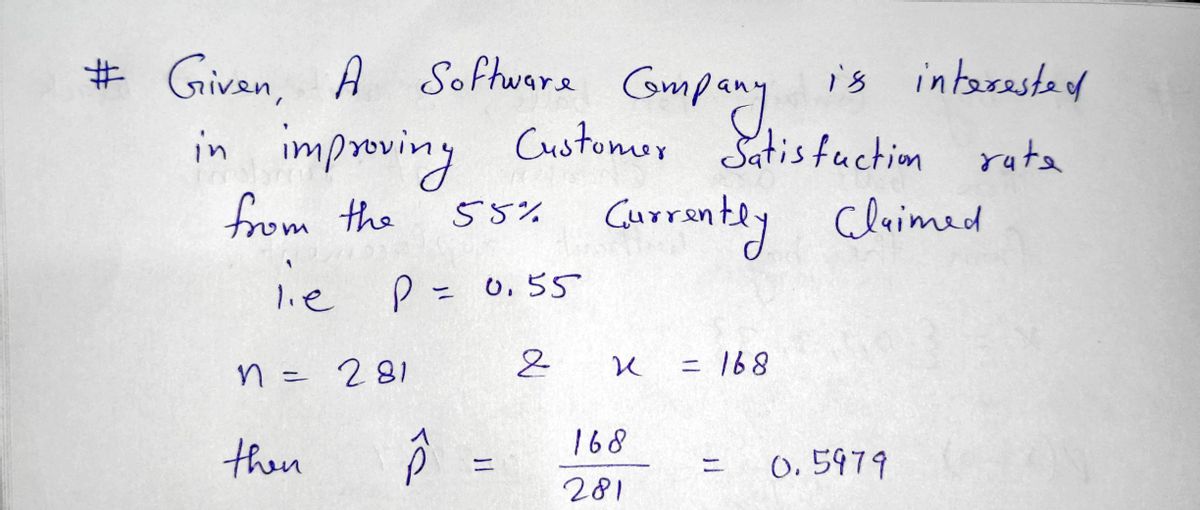 # Given, A Software Company is interested
in improving Customer Satisfaction rate
from the 55% Currently Claimed
i.e p = 0.55
n = 281 & x = 168
then p̂ = 168/281 = 0.5979